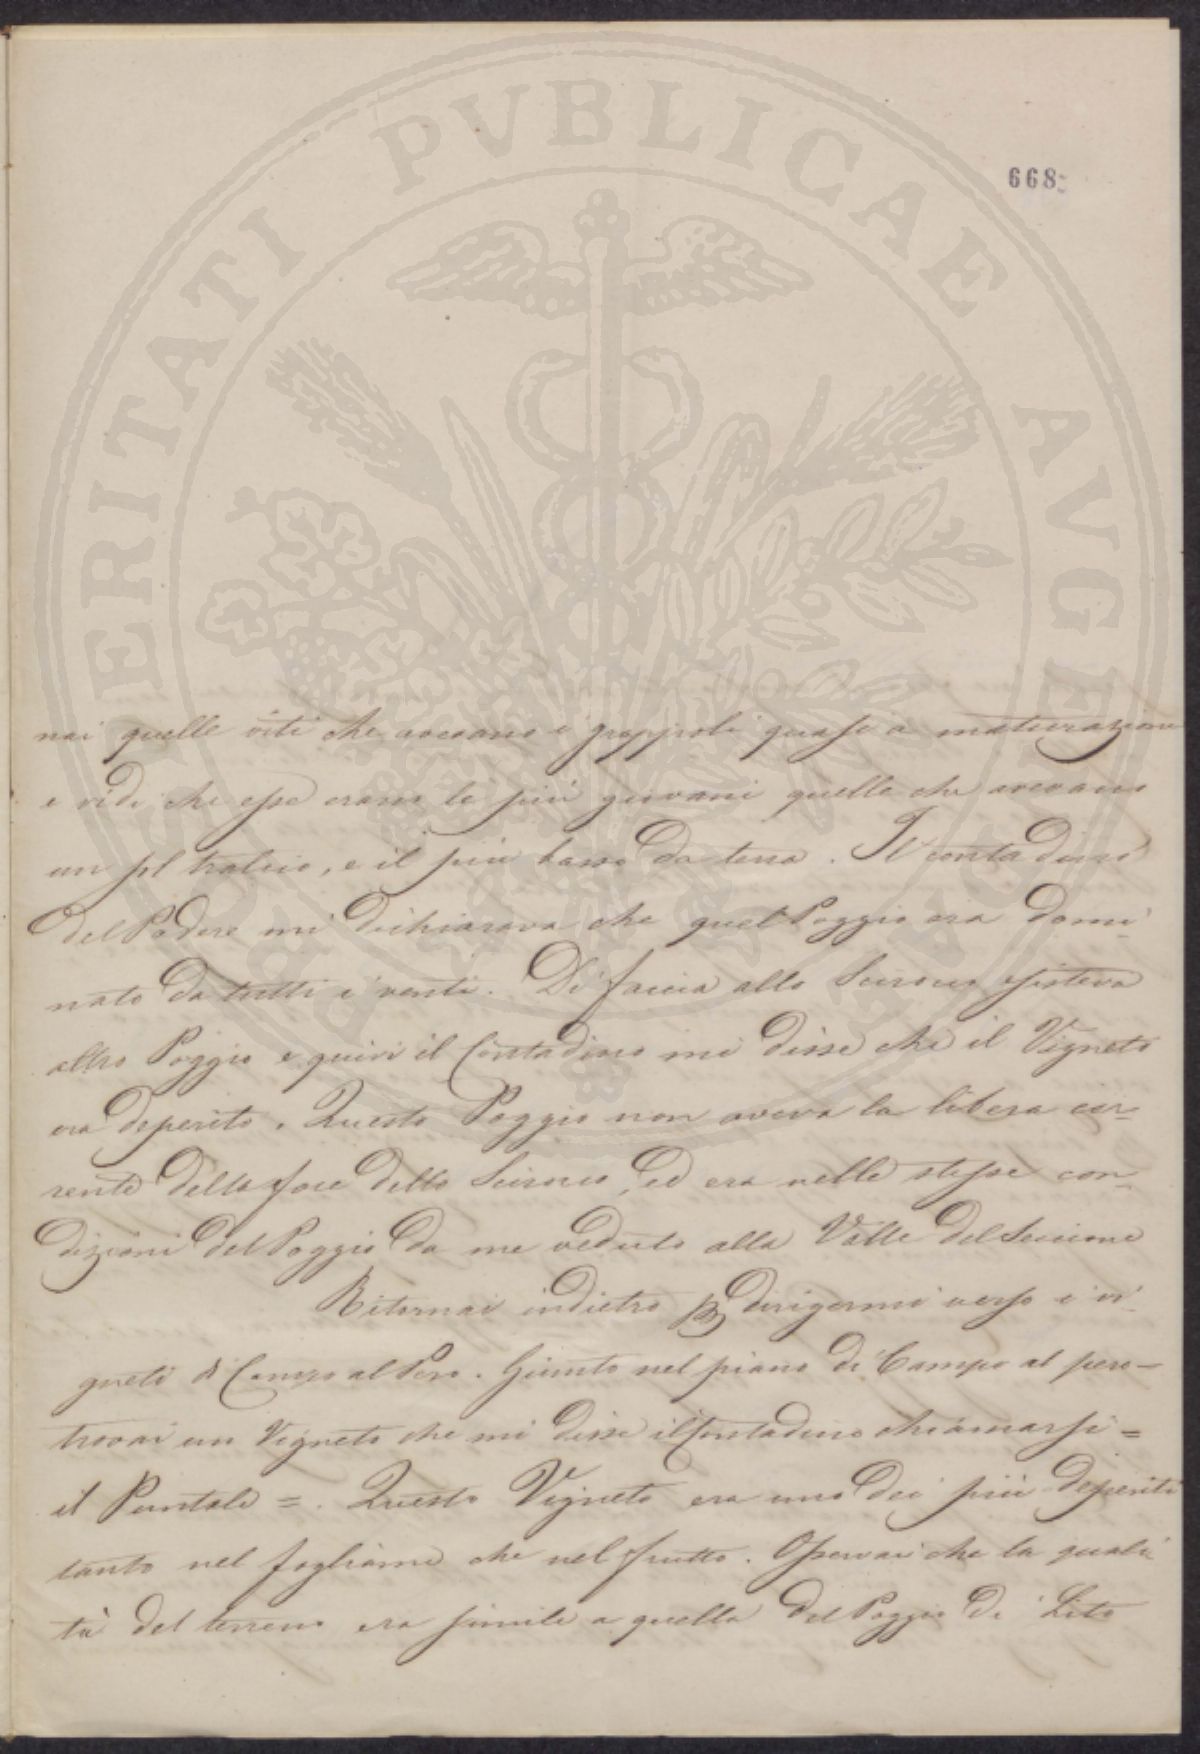 PROSPERITATI PVBLICAE AVGENDAE
668
nai quelle viti che avevano i grappoli quasi a maturazione
e vidi che esse erano le più giovani quelle che avevano
un sol tralcio, e il più basso da terra. Il contadino
del Podere mi dichiarava che quel Poggio era domi-
nato da tutti i venti. Di faccia allo Scirocco esisteva
altro Poggio e quivi il Contadino mi disse che il Vigneto
era deperito. Questo Poggio non aveva la libera cor-
rente della foce dello Scirocco, ed era nelle stesse con-
dizioni del Poggio da me veduto alla Valle del
Ritornai indietro p dirigermi verso i vi-
gneti di Campo al Pero. Giunto nel piano di Campo al pero-
trovai un Vigneto che mi disse il Contadino chiamarsi =
il Puntale =. Questo Vigneto era uno dei più deperiti
tanto nel fogliame che nel frutto. Osservai che la quali-
tà del terreno era simile a quella del Poggio di